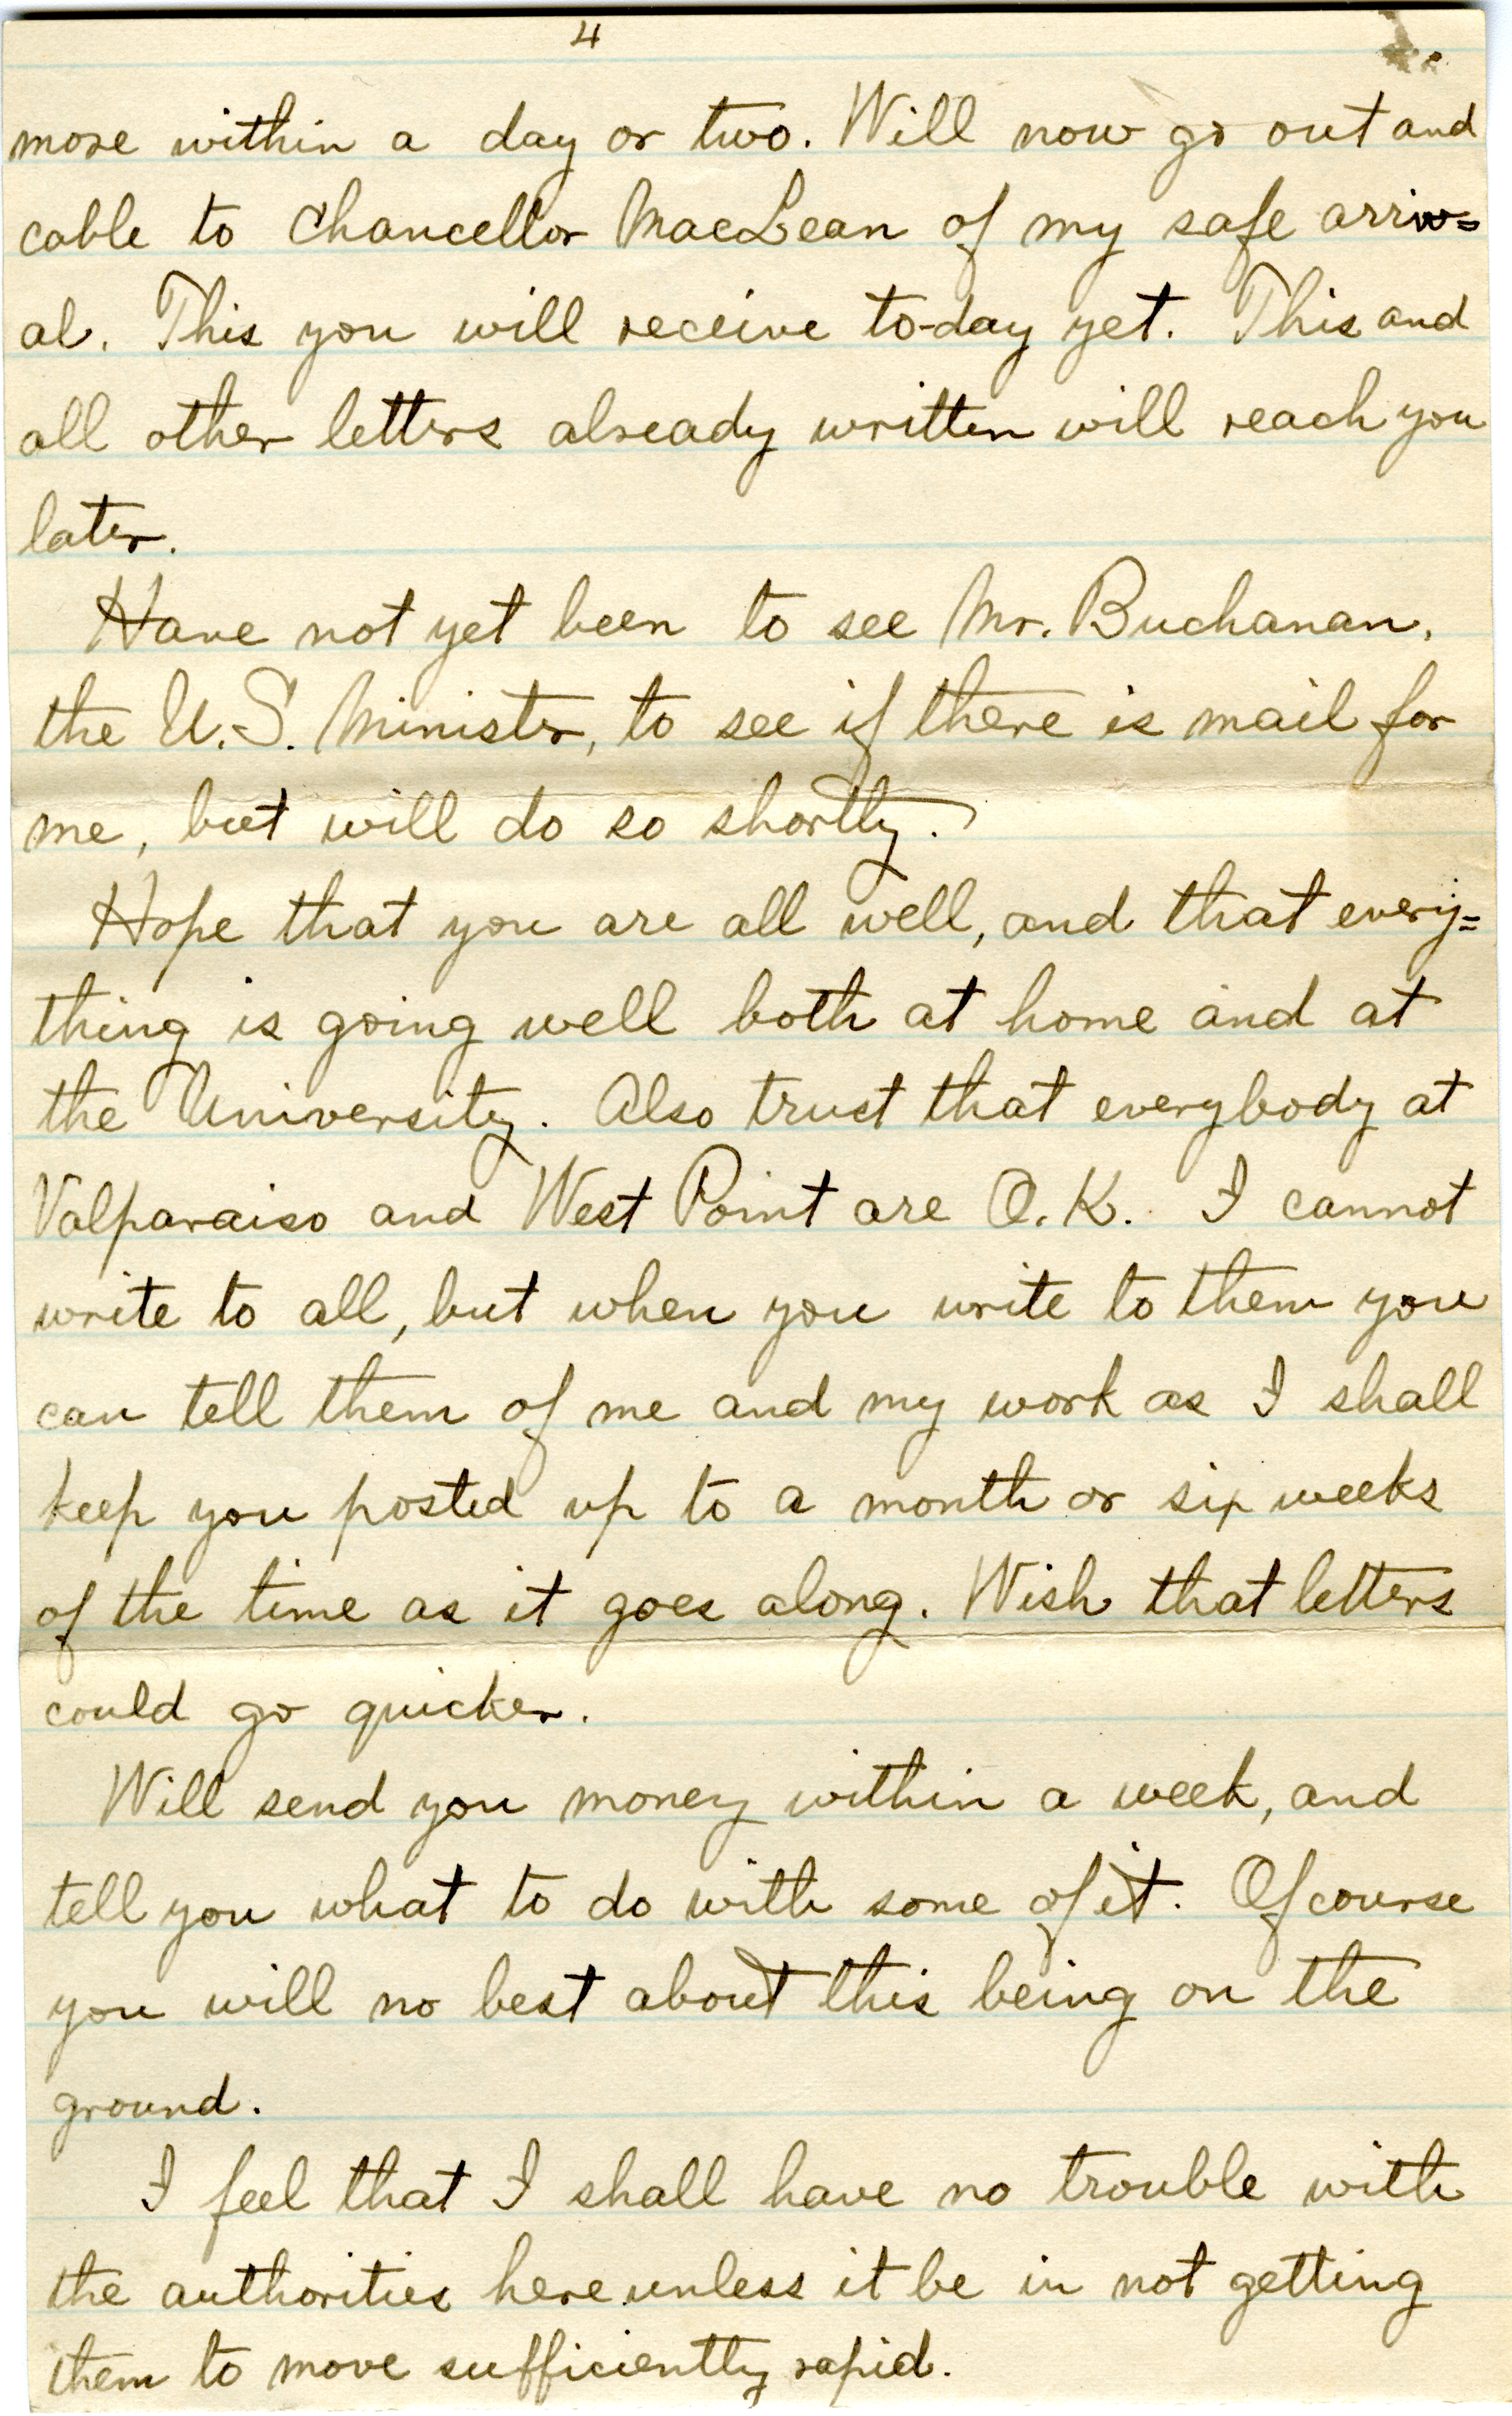 4
more within a day or two. Will now go out and
cable to Chancellor MacLean of my safe arriv=
al. This you will receive to-day yet. This and
all other letters already written will reach you
later.
Have not yet been to see Mr. Buchanan,
the U.S. Minister, to see if there is mail for
me, but will do so shortly.
Hope that you are all well, and that every=
thing is going well both at home and at
the University. Also trust that everybody at
Valparaiso and West Point are O.K. I cannot
write to all, but when you write to them you
can tell them of me and my work as I shall
keep you posted up to a month or six weeks
of the time as it goes along. Wish that letters
could go quicker.
Will send you money within a week, and
tell you what to do with some of it. Of course
you will no best about this being on the
ground.
I feel that I shall have no trouble with
the authorities here unless it be in not getting
them to move sufficiently rapid.